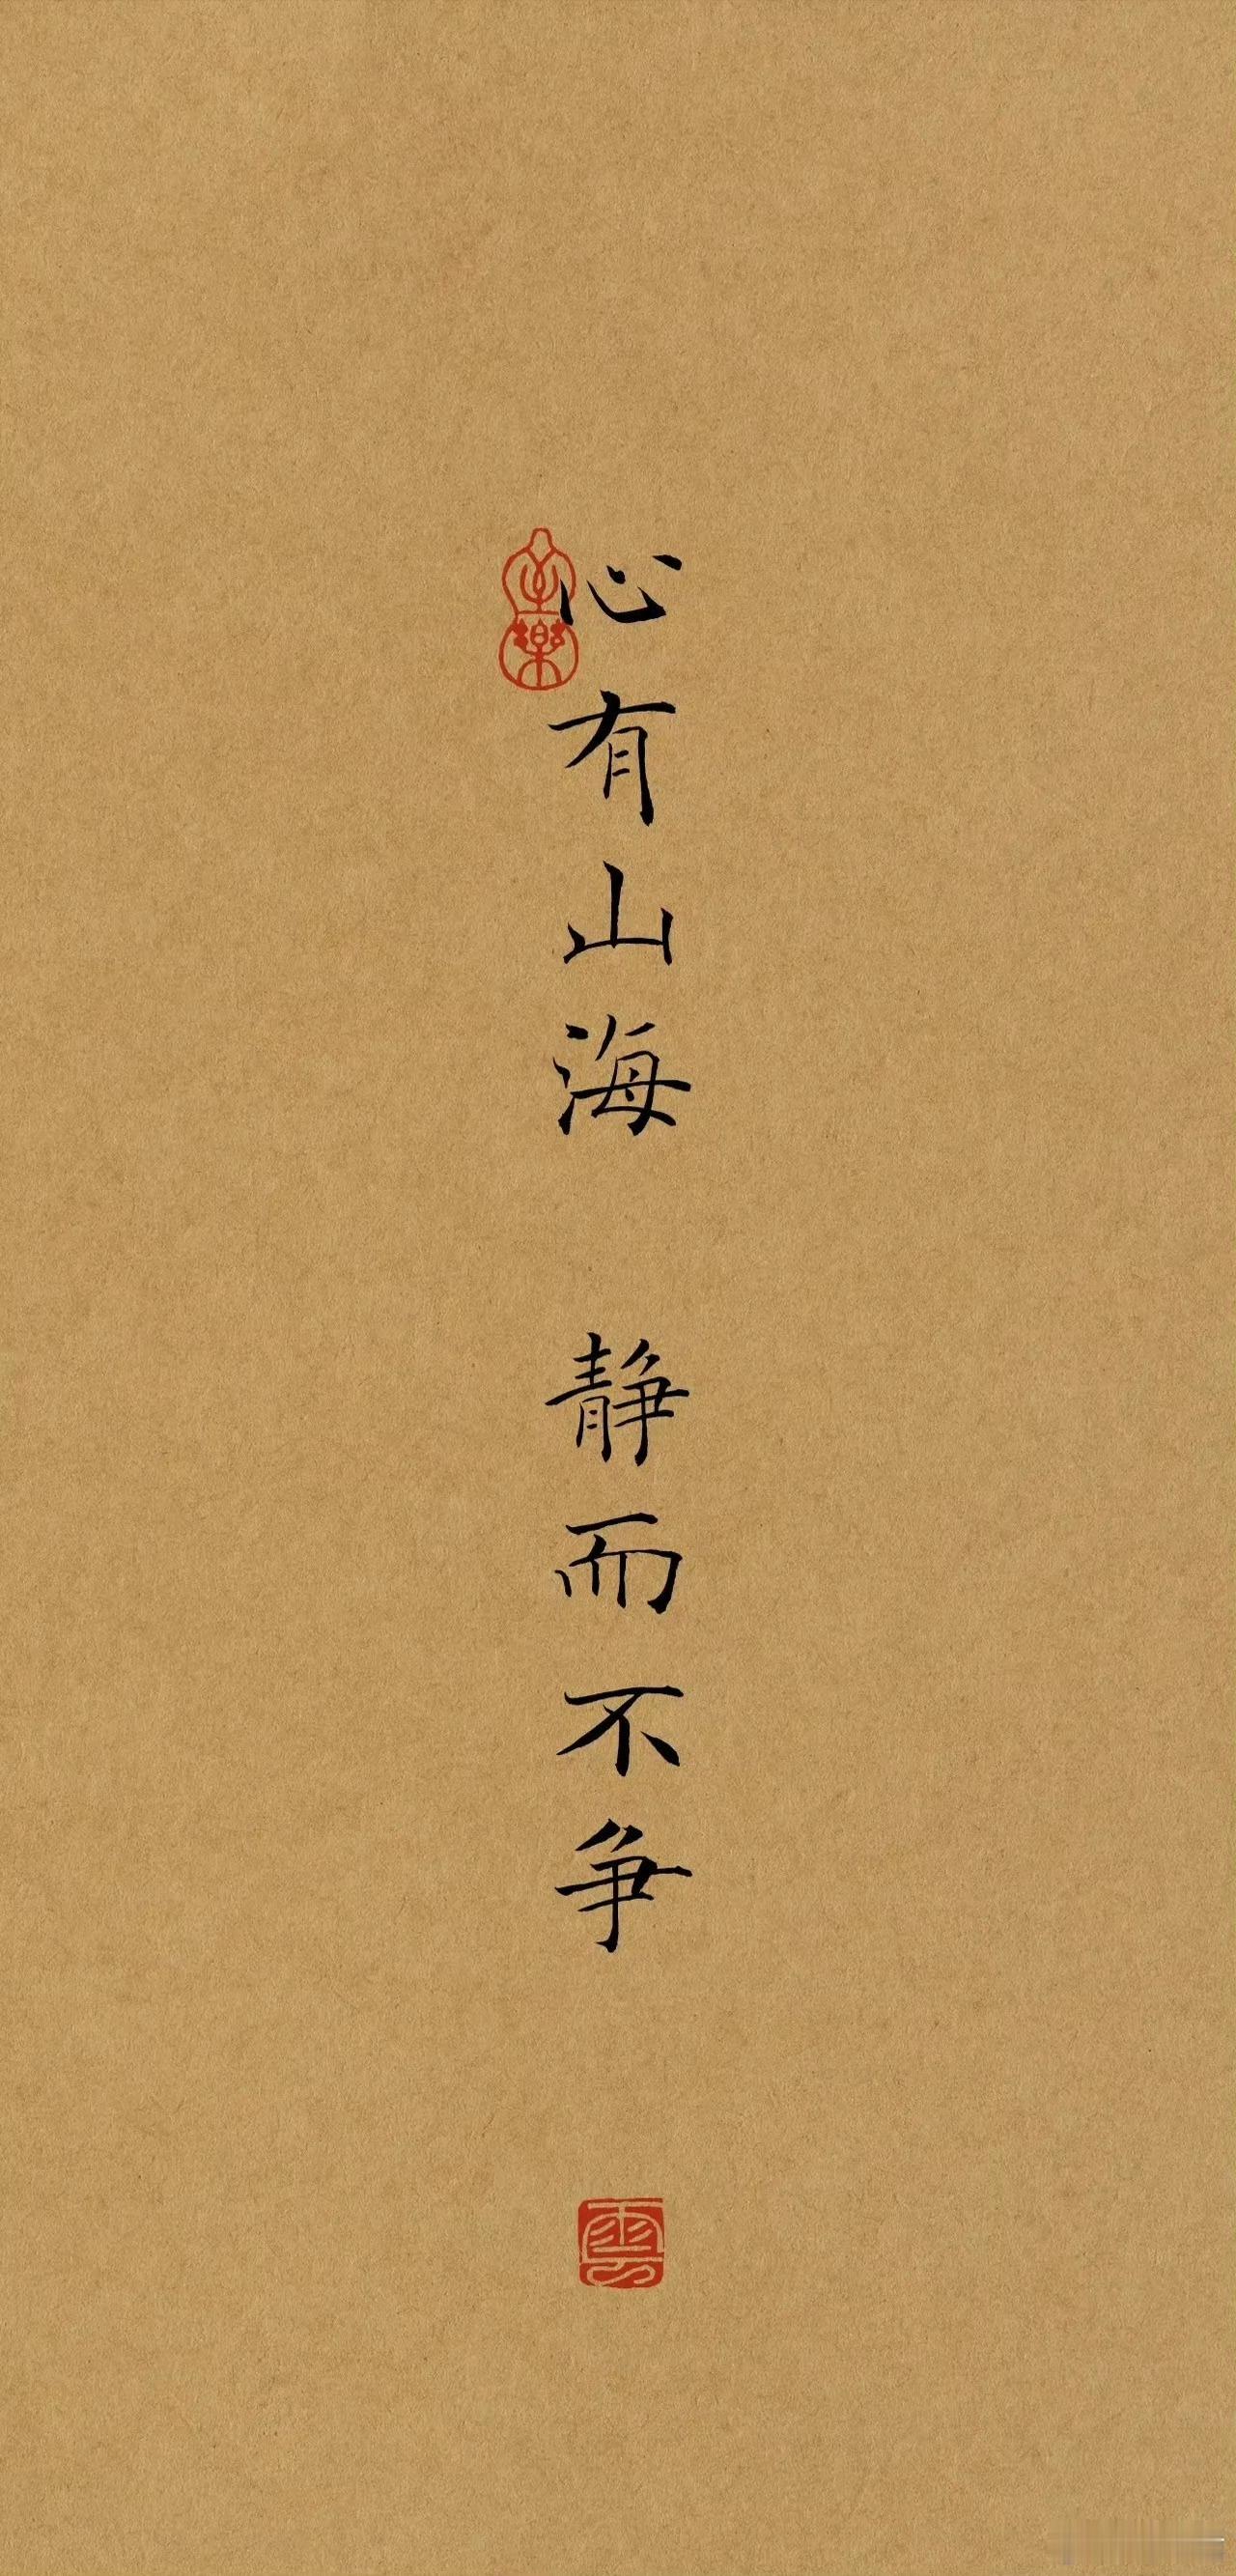 心有山海
静而不争
雲